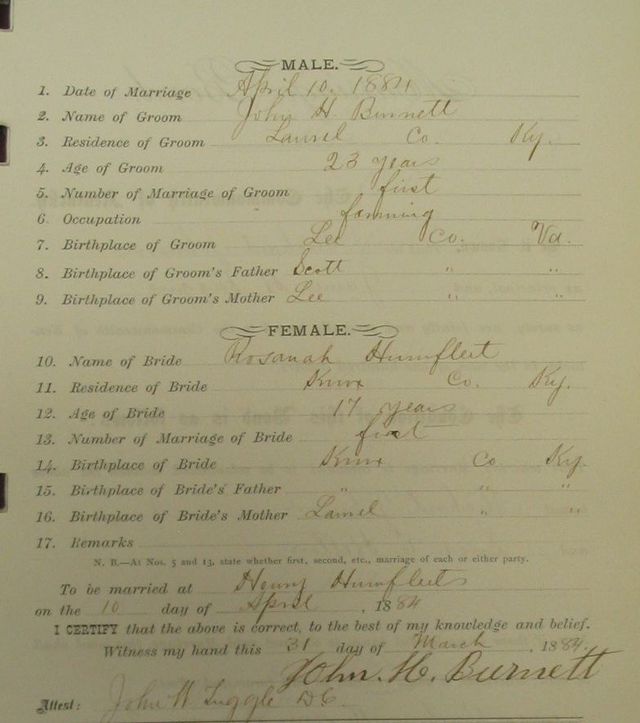 MALE.
1. Date of Marriage April 10. 1884
2. Name of Groom John H Burnett
3. Residence of Groom Laurel Co. Ky.
4. Age of Groom 23 years
5. Number of Marriage of Groom first
6. Occupation farming
7. Birthplace of Groom Lee Co. Va.
8. Birthplace of Groom's Father Scott " "
9. Birthplace of Groom's Mother Lee " "
FEMALE.
10. Name of Bride Rosanah Humfleet
11. Residence of Bride Knox Co. Ky.
12. Age of Bride 17 years
13. Number of Marriage of Bride first
14. Birthplace of Bride Knox Co Ky.
15. Birthplace of Bride's Father " " "
16. Birthplace of Bride's Mother Laurel " "
17. Remarks
N. B.—At Nos. 5 and 13, state whether first, second, etc., marriage of each or either party.
To be married at Henry Humfleets
on the 10 day of April, 1884
I CERTIFY that the above is correct, to the best of my knowledge and belief.
Witness my hand this 31 day of March, 1884.
John. H. Burnett
Attest: John W Tuggle DC.